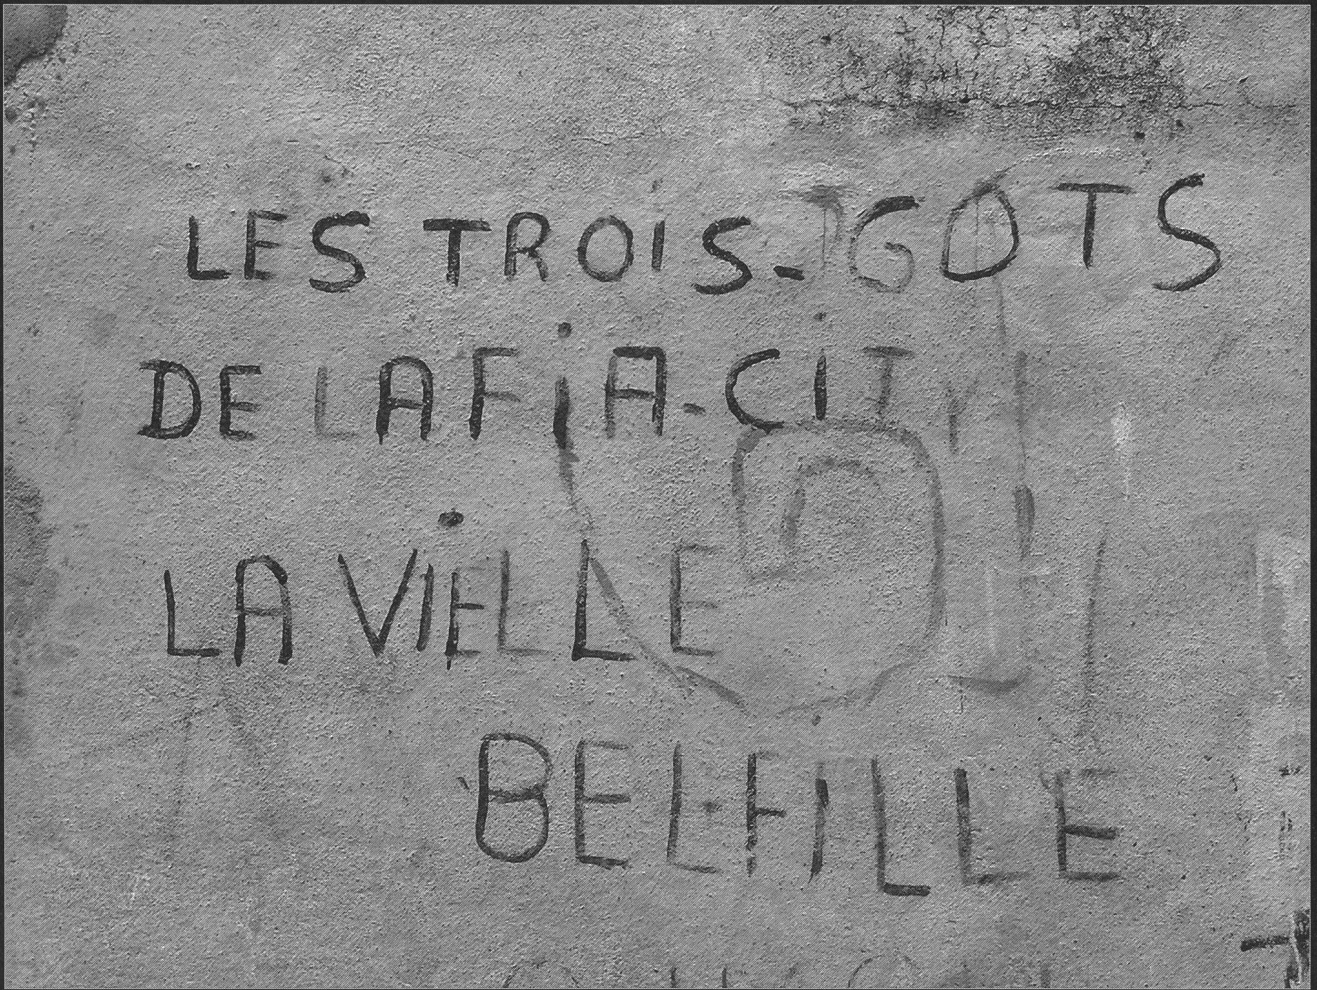 LES TROIS-GOTS
DE LAFiA-CiTY
LA ViELLE
BEL-FILLE